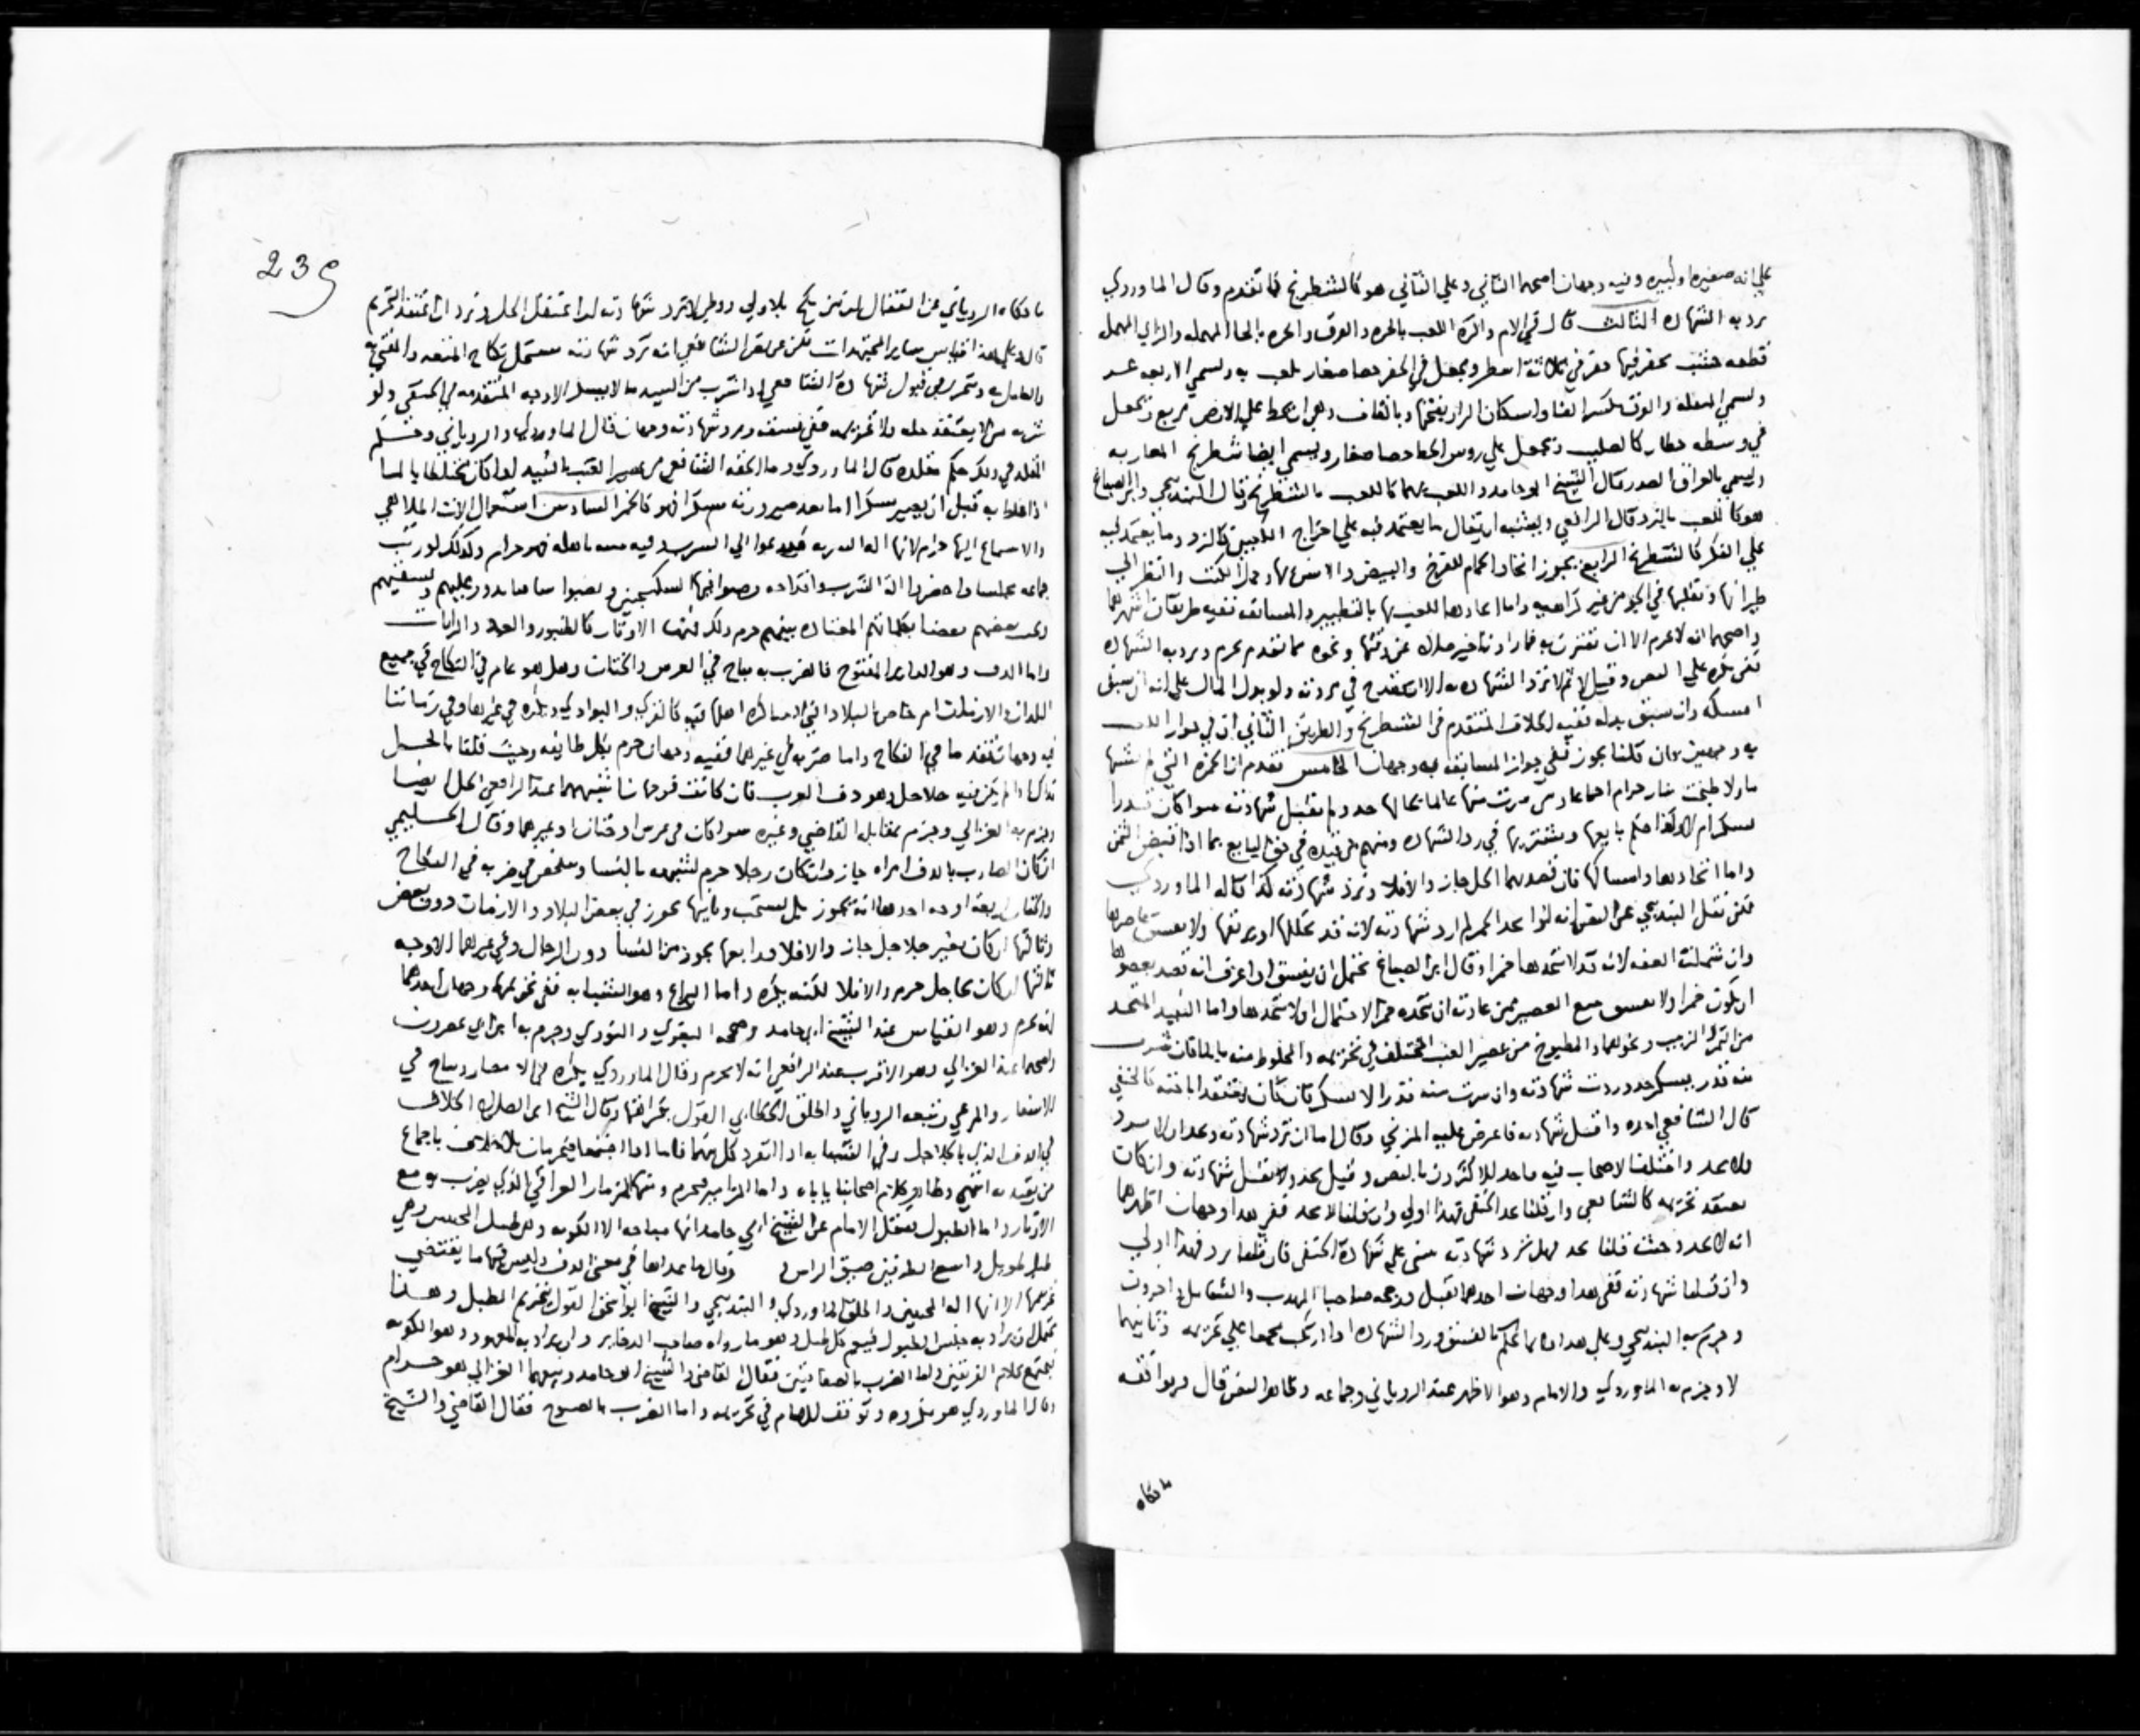 علي انه صغيره او كبيره وفيه وجهان اصحهما الثاني وعلي الثاني هو كالشطرنج كما تقدم وقال الماوردي
يرد به الشهاده الثالث قال في الام واكره اللعب بالحزه والقرق والحزه بالحا المهمله والزاي المعجمه
قطعه خشب يحفر فيها حفر في ثلاثة اسطر ويجعل في الحفر حصا صغار يلعب به ويسمي الاربعه عشر
ويسمي المنقله والقرق بكسر القاف واسكان الرا وبفتحها وبالقاف وهي ان يخط علي الارض مربع ويجعل
في وسطه خطان كالصليب ويجعل علي روس الخطا حصا صغار ويسمي ايضا شطرنج المغاربه
ويسمي بالعراق الصدر قال الشيخ ابو حامد واللعب بهما كاللعب بالشطرنج وقال البندنيجي وابن الصباغ
هو كاللعب بالنرد قال الرافعي ويشبه ان يقال ما يعتمد فيه علي اخراج الكعبين كالنرد وما يعتمد فيه
علي الفكر كالشطرنج الرابع يجوز اتخاذ الحمام للفرخ والبيض والانس بها وحمل الكتب والنظر الي
طيرانها وتقلبها في الجو من غير كراهيه واما اتخاذها للعب بها بالتطيير والمسابقه ففيه طريقان اشهرهما
واصحهما انه لا يحرم الا ان تقترن به قمار او تاخير صلاه عن وقتها ونحوه مما تقدم يحرم ويرد به الشهاده
لكن يكره علي النص وقيل لا ثم لا ترد الشهاده به الا ان يقدح في مروته ولو بذل المال علي انه ان سبق
امسكه وان سبق بذله ففيه الخلاف المتقدم في الشطرنج والطريق الثاني ان في جواز اللعب
به وجهين فان قلنا يجوز ففي جواز المسابقه به وجهان الخامس تقدم ان الخمره التي لم تشبها
ما ولا طبخت بنار حرام اجماعا فمن شرب منها عالما بحالها حد ولم تقبل شهادته سوا كان قدرا
يسكر ام لا وكذا حكم بايعها ومشتريها في رد الشهاده ومنهم من قيده في حق البايع بما اذا قبض الثمن
واما اتخاذها وامساكها فان قصد بهما الخل جاز والا فلا وترد شهادته كذا قاله الماوردي
لكن نقل البندنيجي عن النص انه لو اتخذ الخمر لم ارد شهادته لانه قد يخللها او يريقها ولا يفسق عاصرها
وان شملته اللعنه لانه قد لا يتخذها خمرا وقال ابن الصباغ يحتمل ان يفسق اذا عرف انه قصد بعصرها
ان يكون خمرا ولا يفسق ببيع العصير ممن عادته ان يتخذه خمرا لاحتمال ان لا يتخذها واما النبيذ المتخذ
من التمر والزبيب ونحوهما والمطبوخ من عصير العنب المختلف في تحريمه والمخلوط منه بالما فان شرب
منه قدر يسكر حد وردت شهادته وان شرب منه قدرا لا يسكر فان كان يعتقد اباحته كالحنفي
قال الشافعي احده واقبل شهادته فاعترض عليه المزني وقال اما ان ترد شهادته ويحد او لا ترد
ولا يحد واختلف الاصحاب فيه فاخذ الاكثرون بالنص وقيل يحد ولا تقبل شهادته وان كان
يعتقد تحريمه كالشافعي وان قلنا يحد الحنفي فهذا اولي وان قلنا لا يحد ففي هذا وجهان اظهرهما
انه لا يحد وحيث قلنا يحد فهل ترد شهادته مبني علي شهادة الحنفي فان قلنا ترد فهذا اولي
وان قبلنا شهادته ففي هذا وجهان احدهما تقبل ورجحه صاحبا المهذب والشامل واخرون
وجزم به البندنيجي وعلي هذا انما نحكم بالفسق ورد الشهاده اذا ارتكب مجمعا علي تحريمه وثانيهما
لا وجزم به الماوردي والامام وهو الاظهر عند الروياني وجماعه وظاهر النص قال ويوافقه
ما حكاه
239
ما حكاه الروياني عن القفال ان من نكح بلا ولي ووطي لا ترد شهادته اذا اعتقد الحل وترد ان اعتقد التحريم
قال وعلي هذا قياس ساير المجتهدات لكن عن نص الشافعي انه ترد شهادته مستحل نكاح المتعه والمفتي به
والعامل به وتتحرر في قبول شهادة الشافعي اذا شرب من النبيذ ما لا يسكر الاوجه المتقدمه في الحنفي ولو
شربه من لا يعتقد حله ولا تحريمه ففي فسقه ورد شهادته وجهان قال الماوردي والروياني وحكم
المقلد في ذلك حكم مقلده قال الماوردي وما الحقه الشافعي من عصير العنب بالنبيذ اذا كان مختلطا بالما
اذا خلط به قبل ان يصير مسكرا اما بعد صيرورته مسكرا فهو كالخمر السادس استعمال الات الملاهي
والاستماع اليها حرام لانها اله الشربه فيدعوا الي الشرب وفيه تشبه باهله فهو حرام وكذلك لو رتب
جماعه مجلسا واحضروا الة الشرب واقداحه وصبوا فيها السكنجبين ونصبوا ساقيا يدور عليهم ويسقيهم
ويجيب بعضهم بعضا بكلماتهم المعتاده بينهم حرم وذلك فيها الاوتار كالطنبور والعود والرباب
واما الدف وهو الداير المفتوح فالضرب به مباح في العرس والختان وهل هو عام في النكاح في جميع
البلدان والازمان ام خاص بالبلاد التي لا ينكره اهلها فيه كالقري والبوادي ويكره في غيرها وفي زماننا
فيه وجهان هذا ما في النكاح واما ضربه في غيرهما ففيه وجهان حرم بكل طايفه وحيث قلنا بالحل
فذاك اذا لم يكن فيه جلاجل وهو دف العرب فان كانت فوجهان اشبههما عند الرافعي الحل ايضا
وجزم به الغزالي وجزم بمقابله القاضي وغيره سوا كان في عرس او ختان او غيرهما وقال الحليمي
ان كان الضارب بالدف امراه جاز وان كان رجلا حرم لتشبهه بالنسا وملخص في ضربه في النكاح
والختان اربعة اوجه احدها انه يجوز بل يستحب وثانيها يجوز في بعض البلاد والازمان دون بعض
وثالثها ان كان بغير جلاجل جاز والا فلا ورابعها يجوز من النسا دون الرجال وفي غيرهما الاوجه
ثالثها ان كان بجلاجل حرم والا فلا لكنه يكره واما اليراع وهو الشبابه ففي تحريمها وجهان احدهما
انه يحرم وهو القياس عند الشيخ ابي حامد وصححه البغوي والنووي وجزم به ابن ابي عصرون
واصحهما عند الغزالي وهو الاقرب عند الرافعي انه لا يحرم وقال الماوردي يكره في الامصار ويباح في
الاسفار والمرعي وتبعه الروياني واطلق الخطابي القول بكراهتها وقال الشيخ ابن الصلاح الخلاف
في الدف الذي بالجلاجل وفي الشبابه اذا انفرد كل منهما فاما اذا اجتمعا فيحرمان بلا خلاف باجماع
من يعتد به انتهي وظاهر كلام اصحابنا ياباه واما المزامير فتحرم ومنها المزمار العراقي الذي يضرب به مع
الاوتار واما الطبول فنقل الامام عن الشيخ ابي حامد انها مباحه الا الكوبه وهي طبل المخنثين وهي
طبل طويل واسع الطرفين ضيق الراس وقال ما عداها في معني الدف وليس فيها ما يقتضي
تحريمها الا انها الة المخنثين واطلق الماوردي والبندنيجي والشيخ ابو اسحق القول بتحريم الطبل وهذا
يحتمل ان يراد به جنس الطبول فيعم كل طبل وهو ما رواه صاحب الذخاير وان يراد به المعهود وهو الكوبه
فيجتمع كلام الفريقين واما الضرب بالصفاقتين فقال القاضي والشيخ ابو حامد وتبعهما الغزالي هو حرام
وقال الماوردي هو مكروه وتوقف الامام في تحريمه واما الضرب بالصنوج فقال القاضي والشيخ